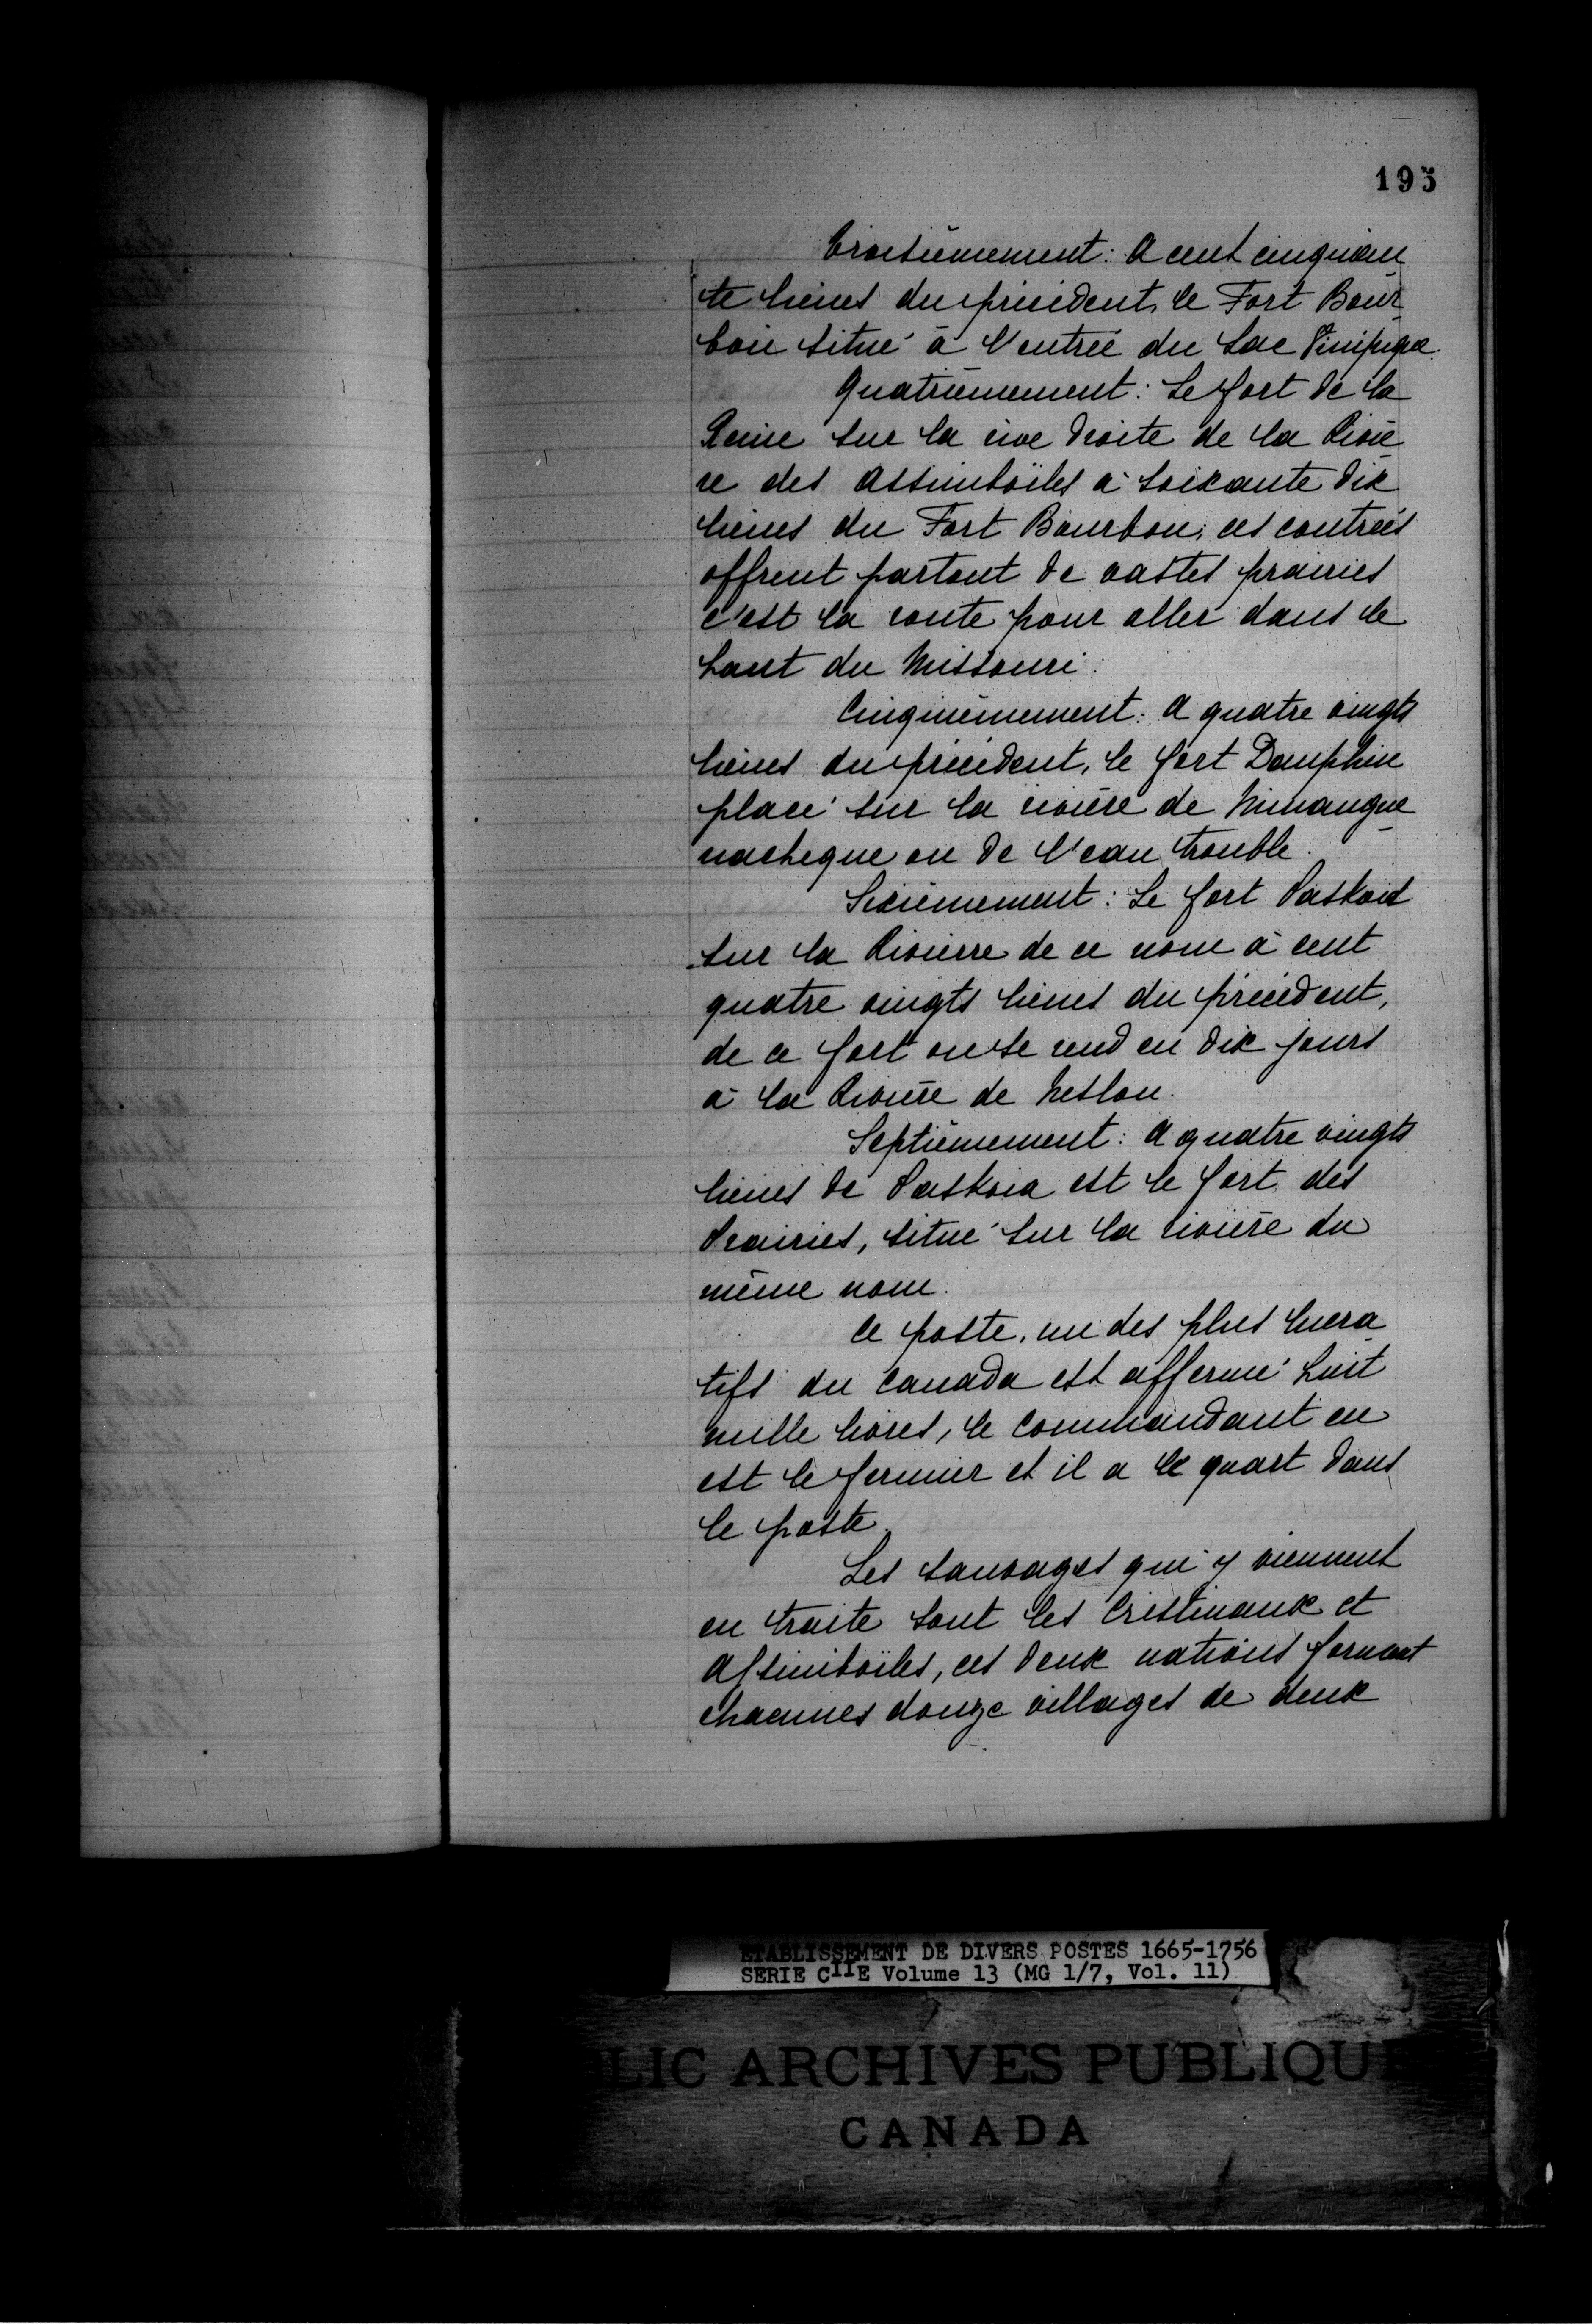 195
Troisièmement: A cent cinquan
te lieues du précédent, le Fort Bour
bon situé à l'entrée du Lac Vinipiga.
Quatrièmement: Le fort de la
Reine sur la rive droite de la Riviè
re des Assiniboïles à soixante dix
lieues du Fort Bourbon, ces contrées
offrent partout de vastes prairies
c'est la route pour aller dans le
haut du Missouri.
Cinquièmement: A quatre vingts
lieues du précédent, le fort Dauphin
placé sur la rivière de Minanque
nacheque ou de l'eau trouble.
Sixièmement: Le fort Paskoia
sur la Rivierre de ce nom à cent
quatre vingts lieues du précédent,
de ce fort on se rend en dix jours
à la Rivière de Neslon.
Septièmement: A quatre vingts
lieues de Paskoia est le fort des
Prairies, situé sur la rivière du
même nom.
Ce poste, un des plus lucra
tifs du Canada est affermé huit
mille livres, le Commandant en
est le fermier et il a le quart dans
le poste.
Les sauvages qui y viennent
en traite sont les Cristinaux et
Assiniboïles, ces deux nations forment
chacunes douze villages de deux
ETABLISSEMENT DE DIVERS POSTES 1665-1756
SERIE CIIE Volume 13 (MG 1/7, Vol. 11)
LIC ARCHIVES PUBLIQUE
CANADA